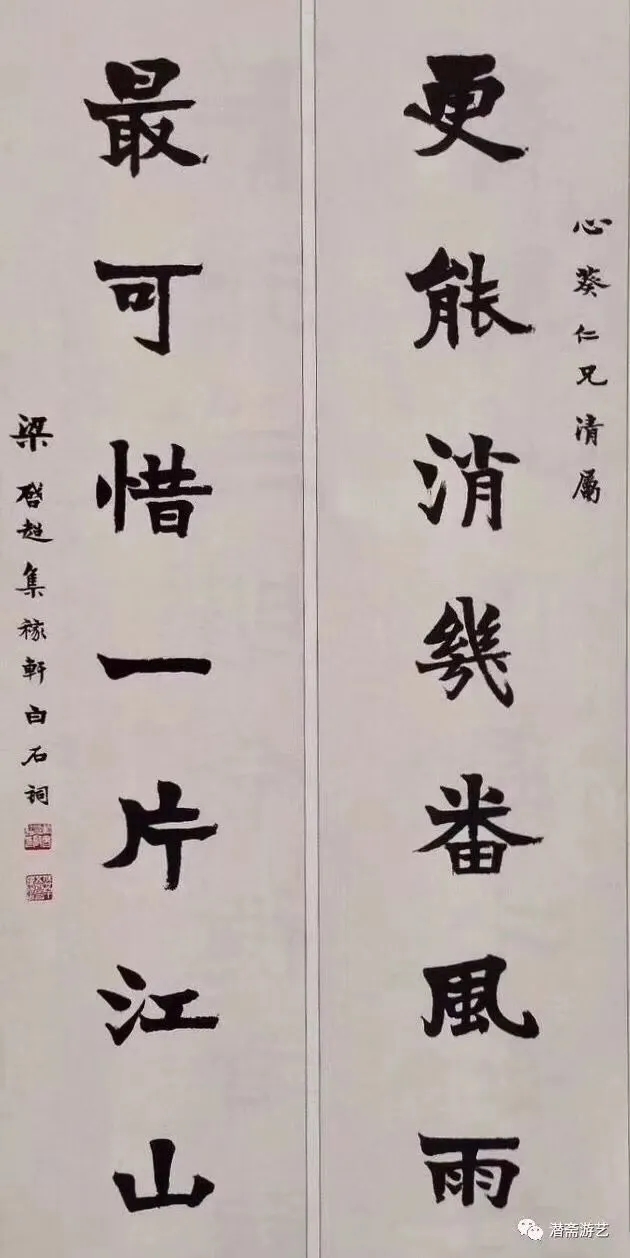 心葵仁兄清属
更能消幾番風雨
最可惜一片江山
梁啓超集稼軒白石詞
潜斋游艺